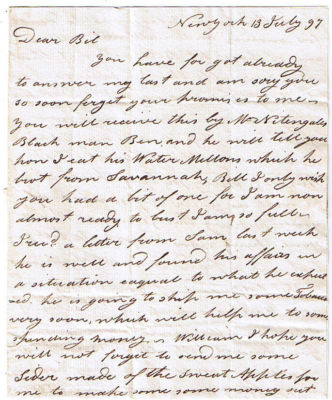 New York 13 July 97
Dear Bil
You have for got already
to answer my last and am sorry you
so soon forget your promis to me
You will receive this by Mr Nitengales
Black man Ben, and he will tell you
how I eat his Water Millons which he
brot from Savannah, Bill I only wish
you had a bit of one for I am now
almost ready to bust I am so full
I recd. a letter from Sam last week
he is well and found his affairs in
a situation eaqual to what he expect
ed. he is going to ship me some Tobacco
very soon, which will help me to some
spending money. William I hope you
will not forget to send me some
Sider made of the Sweat Apples for
me to make some some money out